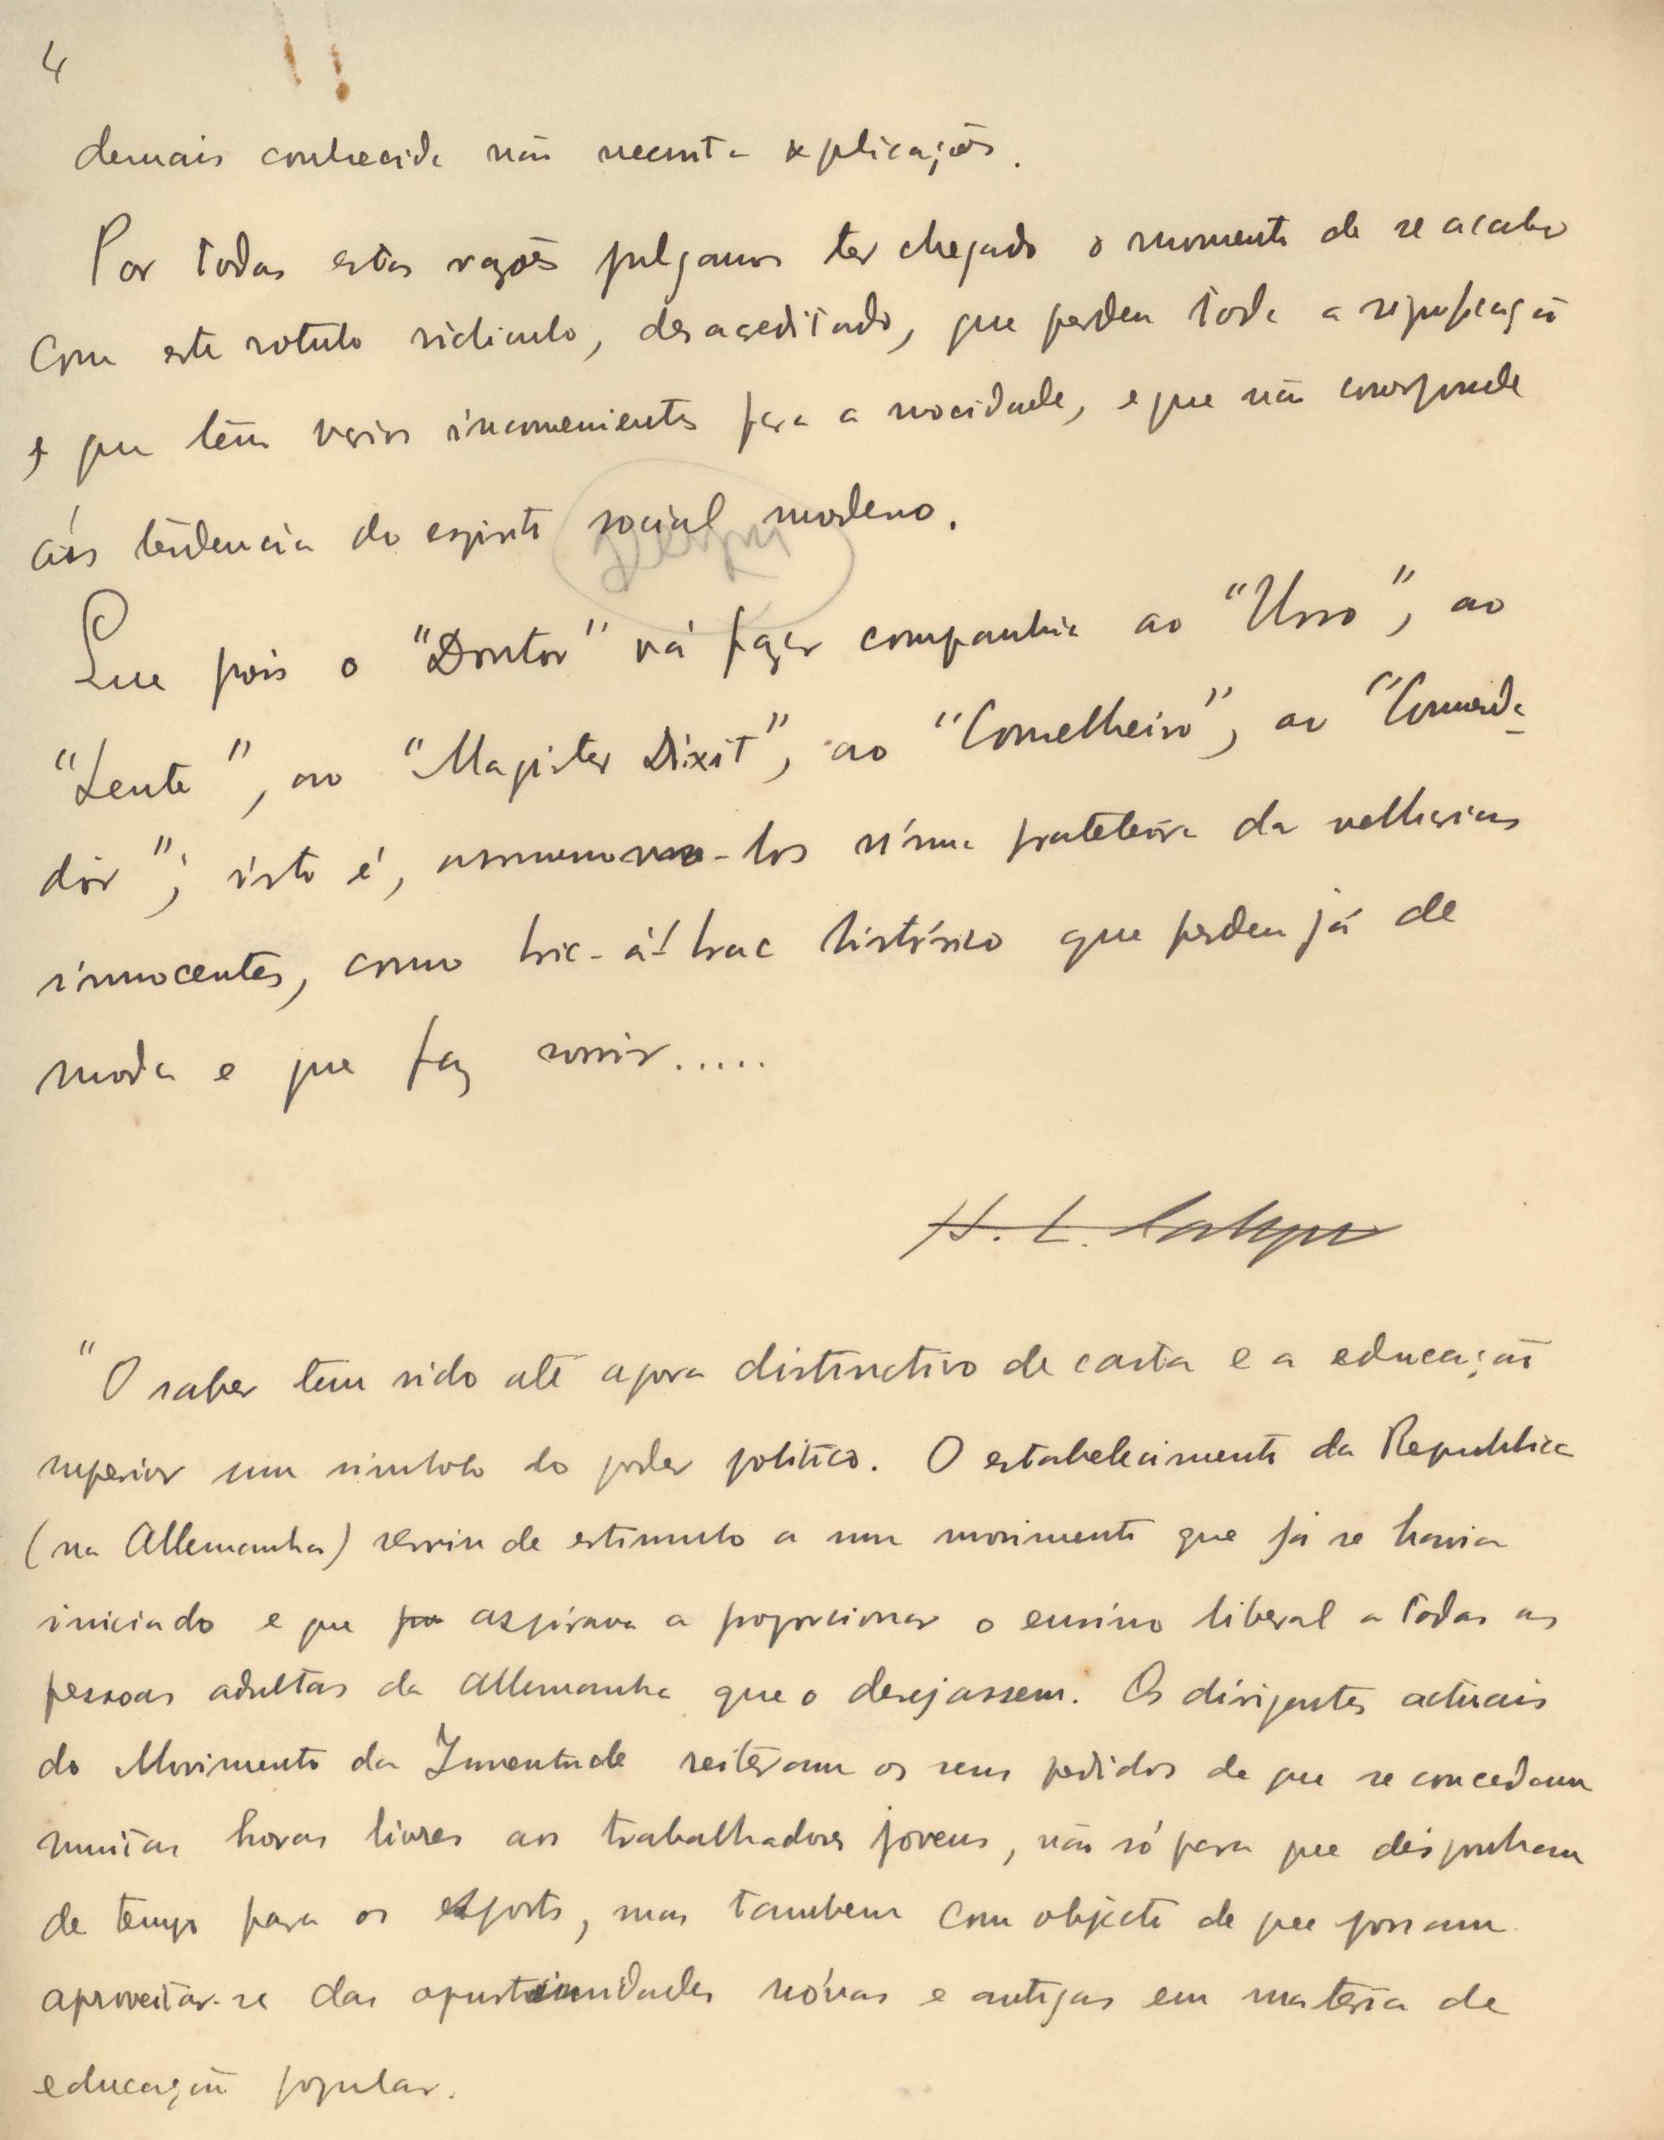 4
demais conhecida não necessita explicações.
Por todas estas razões julgamos ter chegado o momento de se acabar
com este rotulo ridiculo, desacreditado, que perdeu toda a significação
e que têm varios inconvenientes para a mocidade, e que não corresponde
ás tendencia do espirito social moderno.
Que pois o "Doutor" vá fazer companhia ao "Urso", ao
"Lente", ao "Magister Dixit", ao "Conselheiro", ao "Comenda-
dôr"; isto é, -los n'uma prateleira de velharias
innocentes, como bric-á-brac histórico que perdeu já de
moda e que faz sorrir.....
H. L.
"O saber tem sido até agora distinctivo de casta e a educação
superior um simbolo do poder politico. O estabelecimento da Republica
(na Allemanha) serviu de estimulo a um movimento que já se havia
iniciado e que aspirava a proporcionar o ensino liberal a todas as
pessoas adultas da Allemanha que o desejassem. Os dirigentes actuais
do Movimento da Juventude reiteram os seus pedidos de que se concedam
muitas horas livres aos trabalhadores jovens, não só para que disponham
de tempo para os esports, mas tambem com objecto de que possam
aproveitar-se das oportunidades nóvas e antigas em materia de
educação popular.